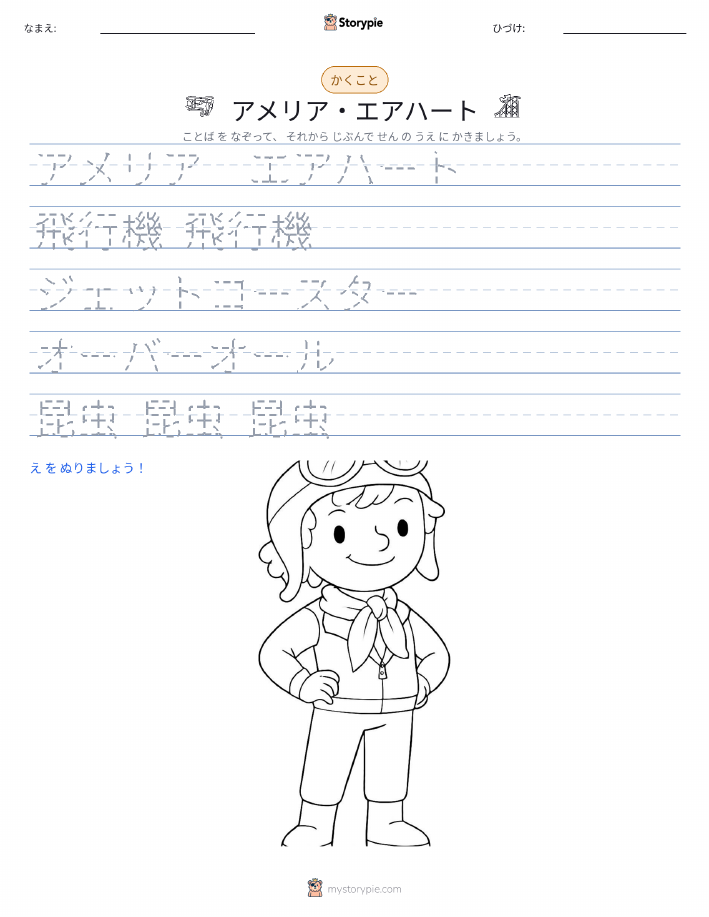 なまえ:
Storypie
ひづけ:
かくこと
アメリア・エアハート
ことば を なぞって、 それから じぶんで せん の うえ に かきましょう。
アメリア エアハート
飛行機 飛行機
ジェットコースター
オーバーオール
昆虫 昆虫 昆虫
え を ぬりましょう！
mystorypie.com